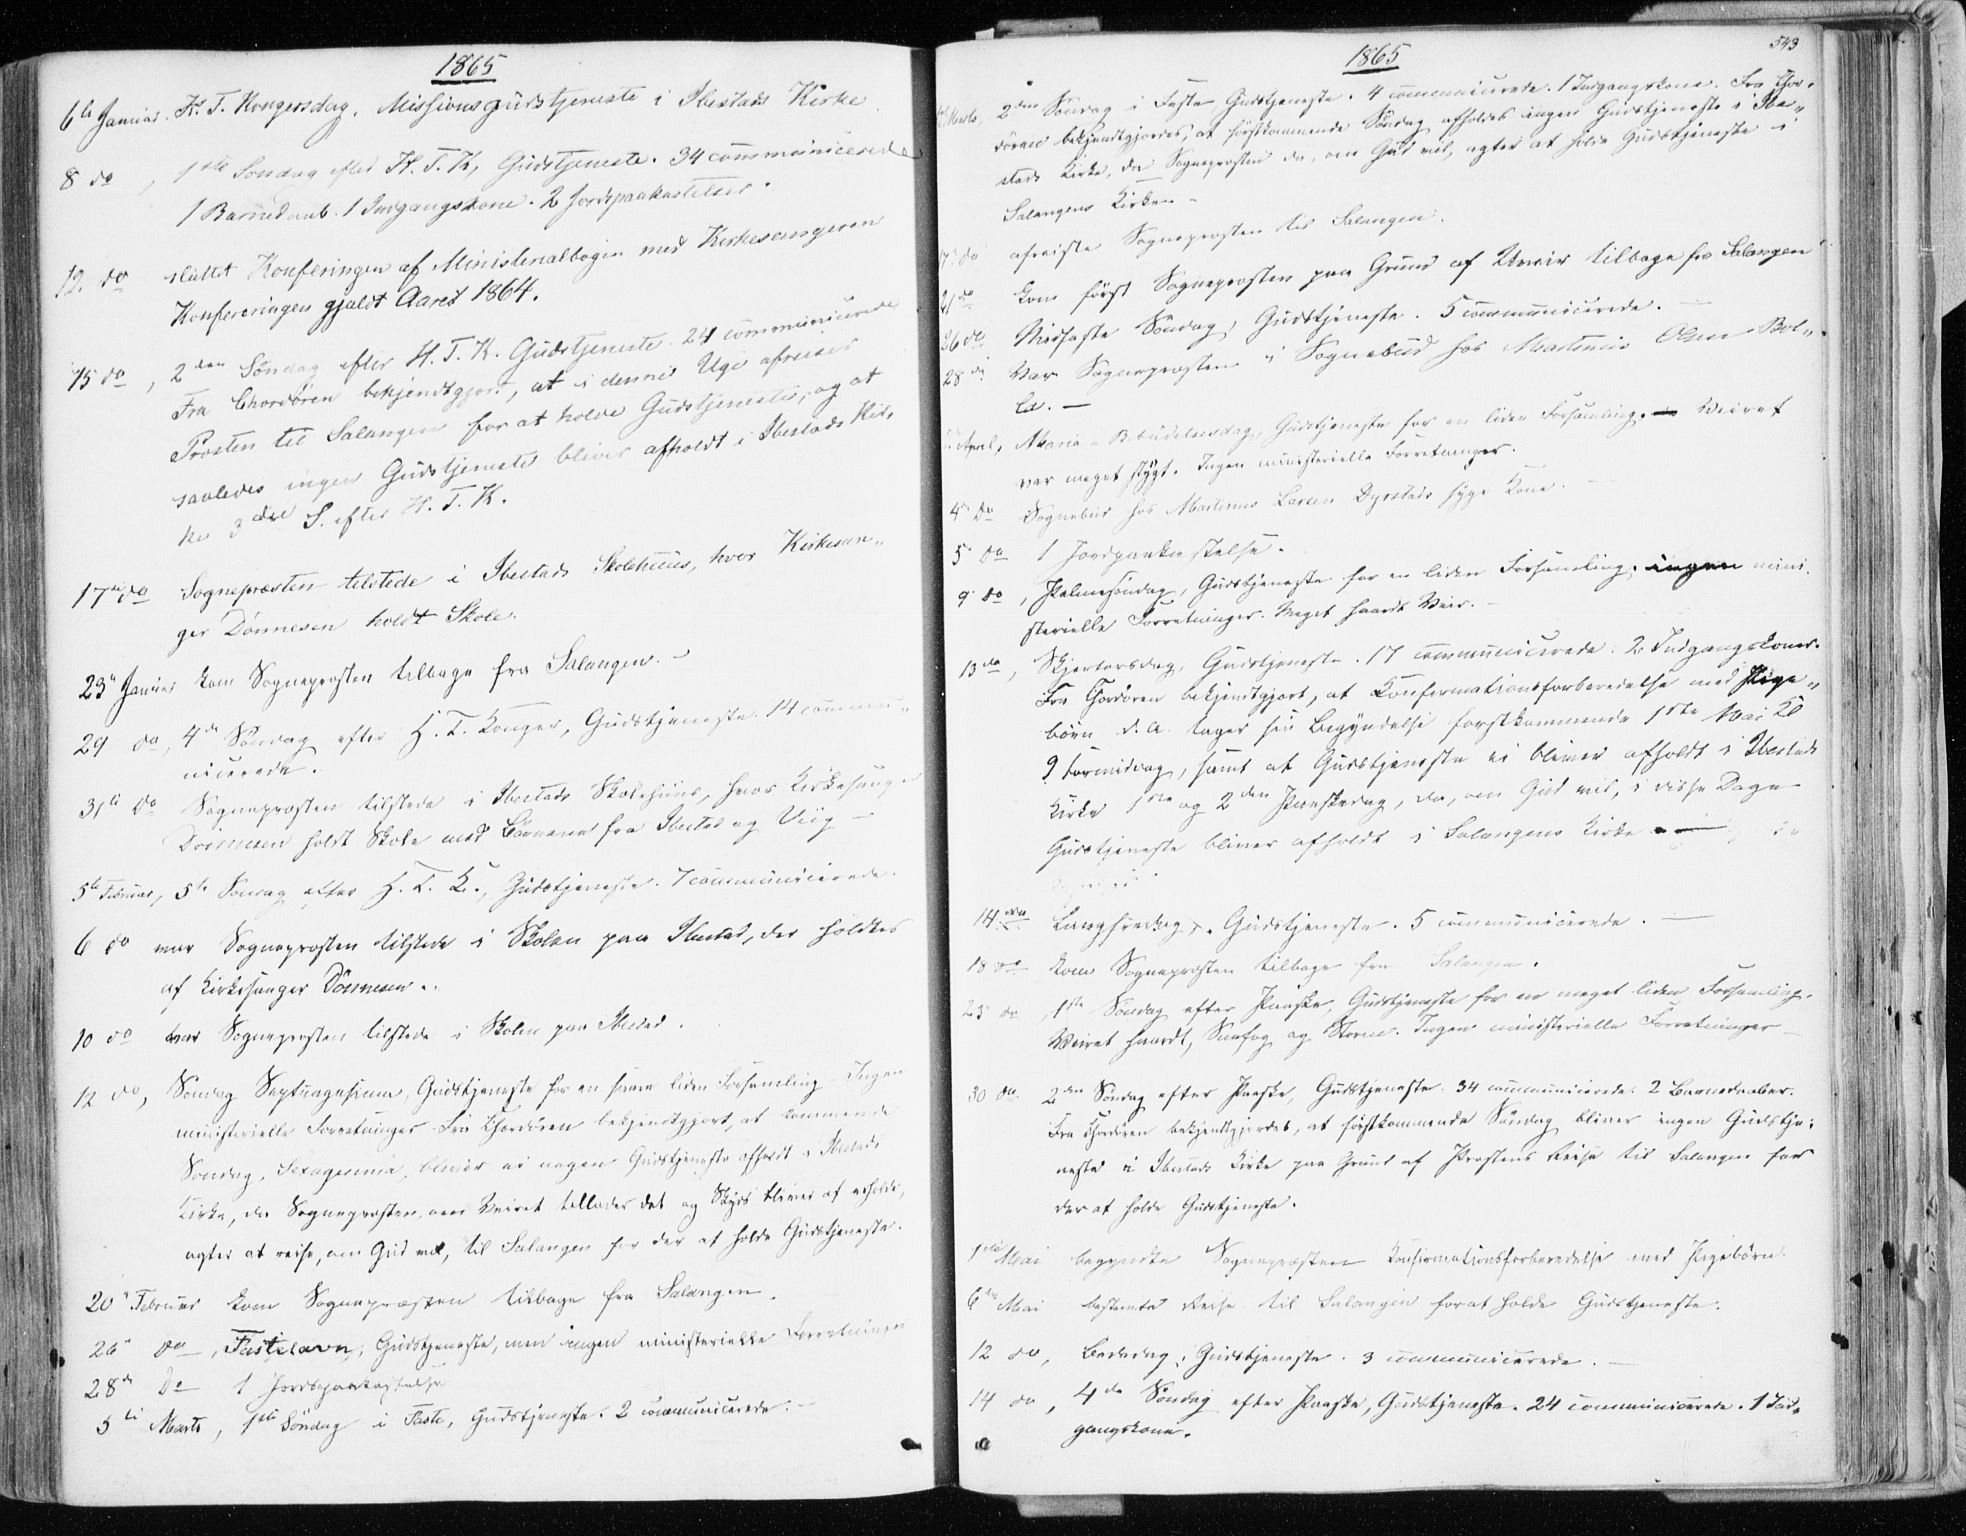 1865
6te Januar. H. T. Kongersdag. Missionsgudstjeneste i Ibestads Kirke
8 do, 1ste Søndag efter H. T. K, Gudstjeneste. 34 communicerede
1 Barnedaab. 1 Indgangskone. 2 Jordpaakastelser.
12. do sluttet Konferingen af Ministerialbogen med Kirkesangeren
Konfereringen gjaldt Aaret 1864.
15 do, 2den Søndag efter H. T. K. Gudstjeneste. 24 communicerede
Fra Chordøren bekjendtgjort, at i denne Uge afreiser
Provsten til Salangen for at holde Gudstjeneste, og at
saaledes ingen Gudstjeneste bliver afholdt i Ibestads Kir-
ke 3die S. efter H. T. K.
17de do Sognepræsten tilstede i Ibestads Skolehuus, hvor Kirkesan-
ger Dönnesen holdt Skole.
23de Januar kom Sogneprosten tilbage fra Salangen.
29 do, 4de Søndag efter H. T. Konger, Gudstjeneste. 14 commu-
nicerede.
31te do Sogneprosten tilstede i Ibestads Skolehuus, hvor Kirkesanger
Dönnesen holdt Skole med Börnene fra Ibestad og Viig
5te Februar, 5te Søndag efter H. T. K., Gudstjeneste. 7 communicerede.
6 do var Sogneprosten tilstede i Skolen paa Ibestad, der holdtes
af Kirkesanger Dönnesen.
10 do var Sogneprosten tilstede i Skolen paa Ibestad.
12 do, Søndag Septuagesima, Gudstjeneste for en liden Forsamling. Ingen
ministerielle Forretninger. Fra Chordøren bekjendtgjort, at kommende
Søndag, Sexagesima, bliver ei nogen Gudstjeneste afholdt i Ibestads
Kirke, da Sogneprosten, om Veiret tillader det og Skyds bliver at erholde,
agter at reise, om Gud vil, til Salangen for der at holde Gudstjeneste.
20de Februar kom Sogneprosten tilbage fra Salangen.
26de do, Fastelavn, Gudstjeneste, men ingen ministerielle Forretninger
28de do 1 Jordspaakastelse
5te Marts, 1ste Søndag i Faste, Gudstjeneste. 2 communicerede.
1865
543
Marts, 2den Søndag i Faste Gudstjeneste. 4 communicerede. 1 Indgangskone. Fra Chor-
døren bekjendtgjordes, at førstkommende Søndag afholdes ingen Gudstjeneste i Ibe-
stads Kirke, da Sogneprosten da, om Gud vil, agter at holde Gudstjeneste i
Salangens Kirke.
17. do afreiste Sogneprosten til Salangen.
21 do kom først Sogneprosten paa Grund af Uveir tilbage fra Salangen
26 do Midfaste Søndag, Gudstjeneste. 5 communicerede.
28 do Var Sogneprosten i Sognebud hos Martinus Olsen Bol-
la.
April, Maria-Bebudelsesdag, Gudstjeneste for en liden Forsamling. Veiret
var meget stygt. Ingen ministerielle Forretninger.
4de do Sognebud hos Martinus Larsen Dyrstads syge Kone.
5 do 1 Jordpaakastelse.
9 do, Palmesøndag, Gudstjeneste for en liden Forsamling, ingen mini-
sterielle Forretninger. Meget haardt Veir.
13 do, Skjertorsdag, Gudstjeneste. 17 communicerede. 2 Indgangskoner.
Fra Chordøren bekjendtgjort, at Konfirmationsforberedelse med Pige-
börn d. A. tager sin Begyndelse førstkommende 1ste Mai Kl
9 Formiddag, samt at Gudstjeneste ei bliver afholdt i Ibestads
Kirke 1ste og 2den Paaskedag, da, om Gud vil, i disse Dage
Gudstjeneste bliver afholdt i Salangens Kirke
14. do Langfredag, Gudstjeneste. 5 communicerede.
18 do kom Sogneprosten tilbage fra Salangen.
23 do, 1ste Søndag efter Paaske, Gudstjeneste for en meget liden Forsamling.
Veiret haardt, Snefog og Storm. Ingen ministerielle Forretninger
30 do 2den Søndag efter Paaske, Gudstjeneste. 34 communicerede. 2 Barnedaaber.
Fra Chordøren bekjendtgjordes, at førstkommende Søndag bliver ingen Gudstje-
neste i Ibestads Kirke paa Grund af Prostens Reise til Salangen for
der at holde Gudstjeneste.
1ste Mai begyndte Sogneprosten Konfirmationsforberedelse med Pigebörn.
6te Mai Reise til Salangen forat holde Gudstjeneste.
12 do, Bededag, Gudstjeneste. 3 communicerede.
14 do, 4de Søndag efter Paaske, Gudstjeneste. 24 communicerede. 1 Ind-
gangskone.